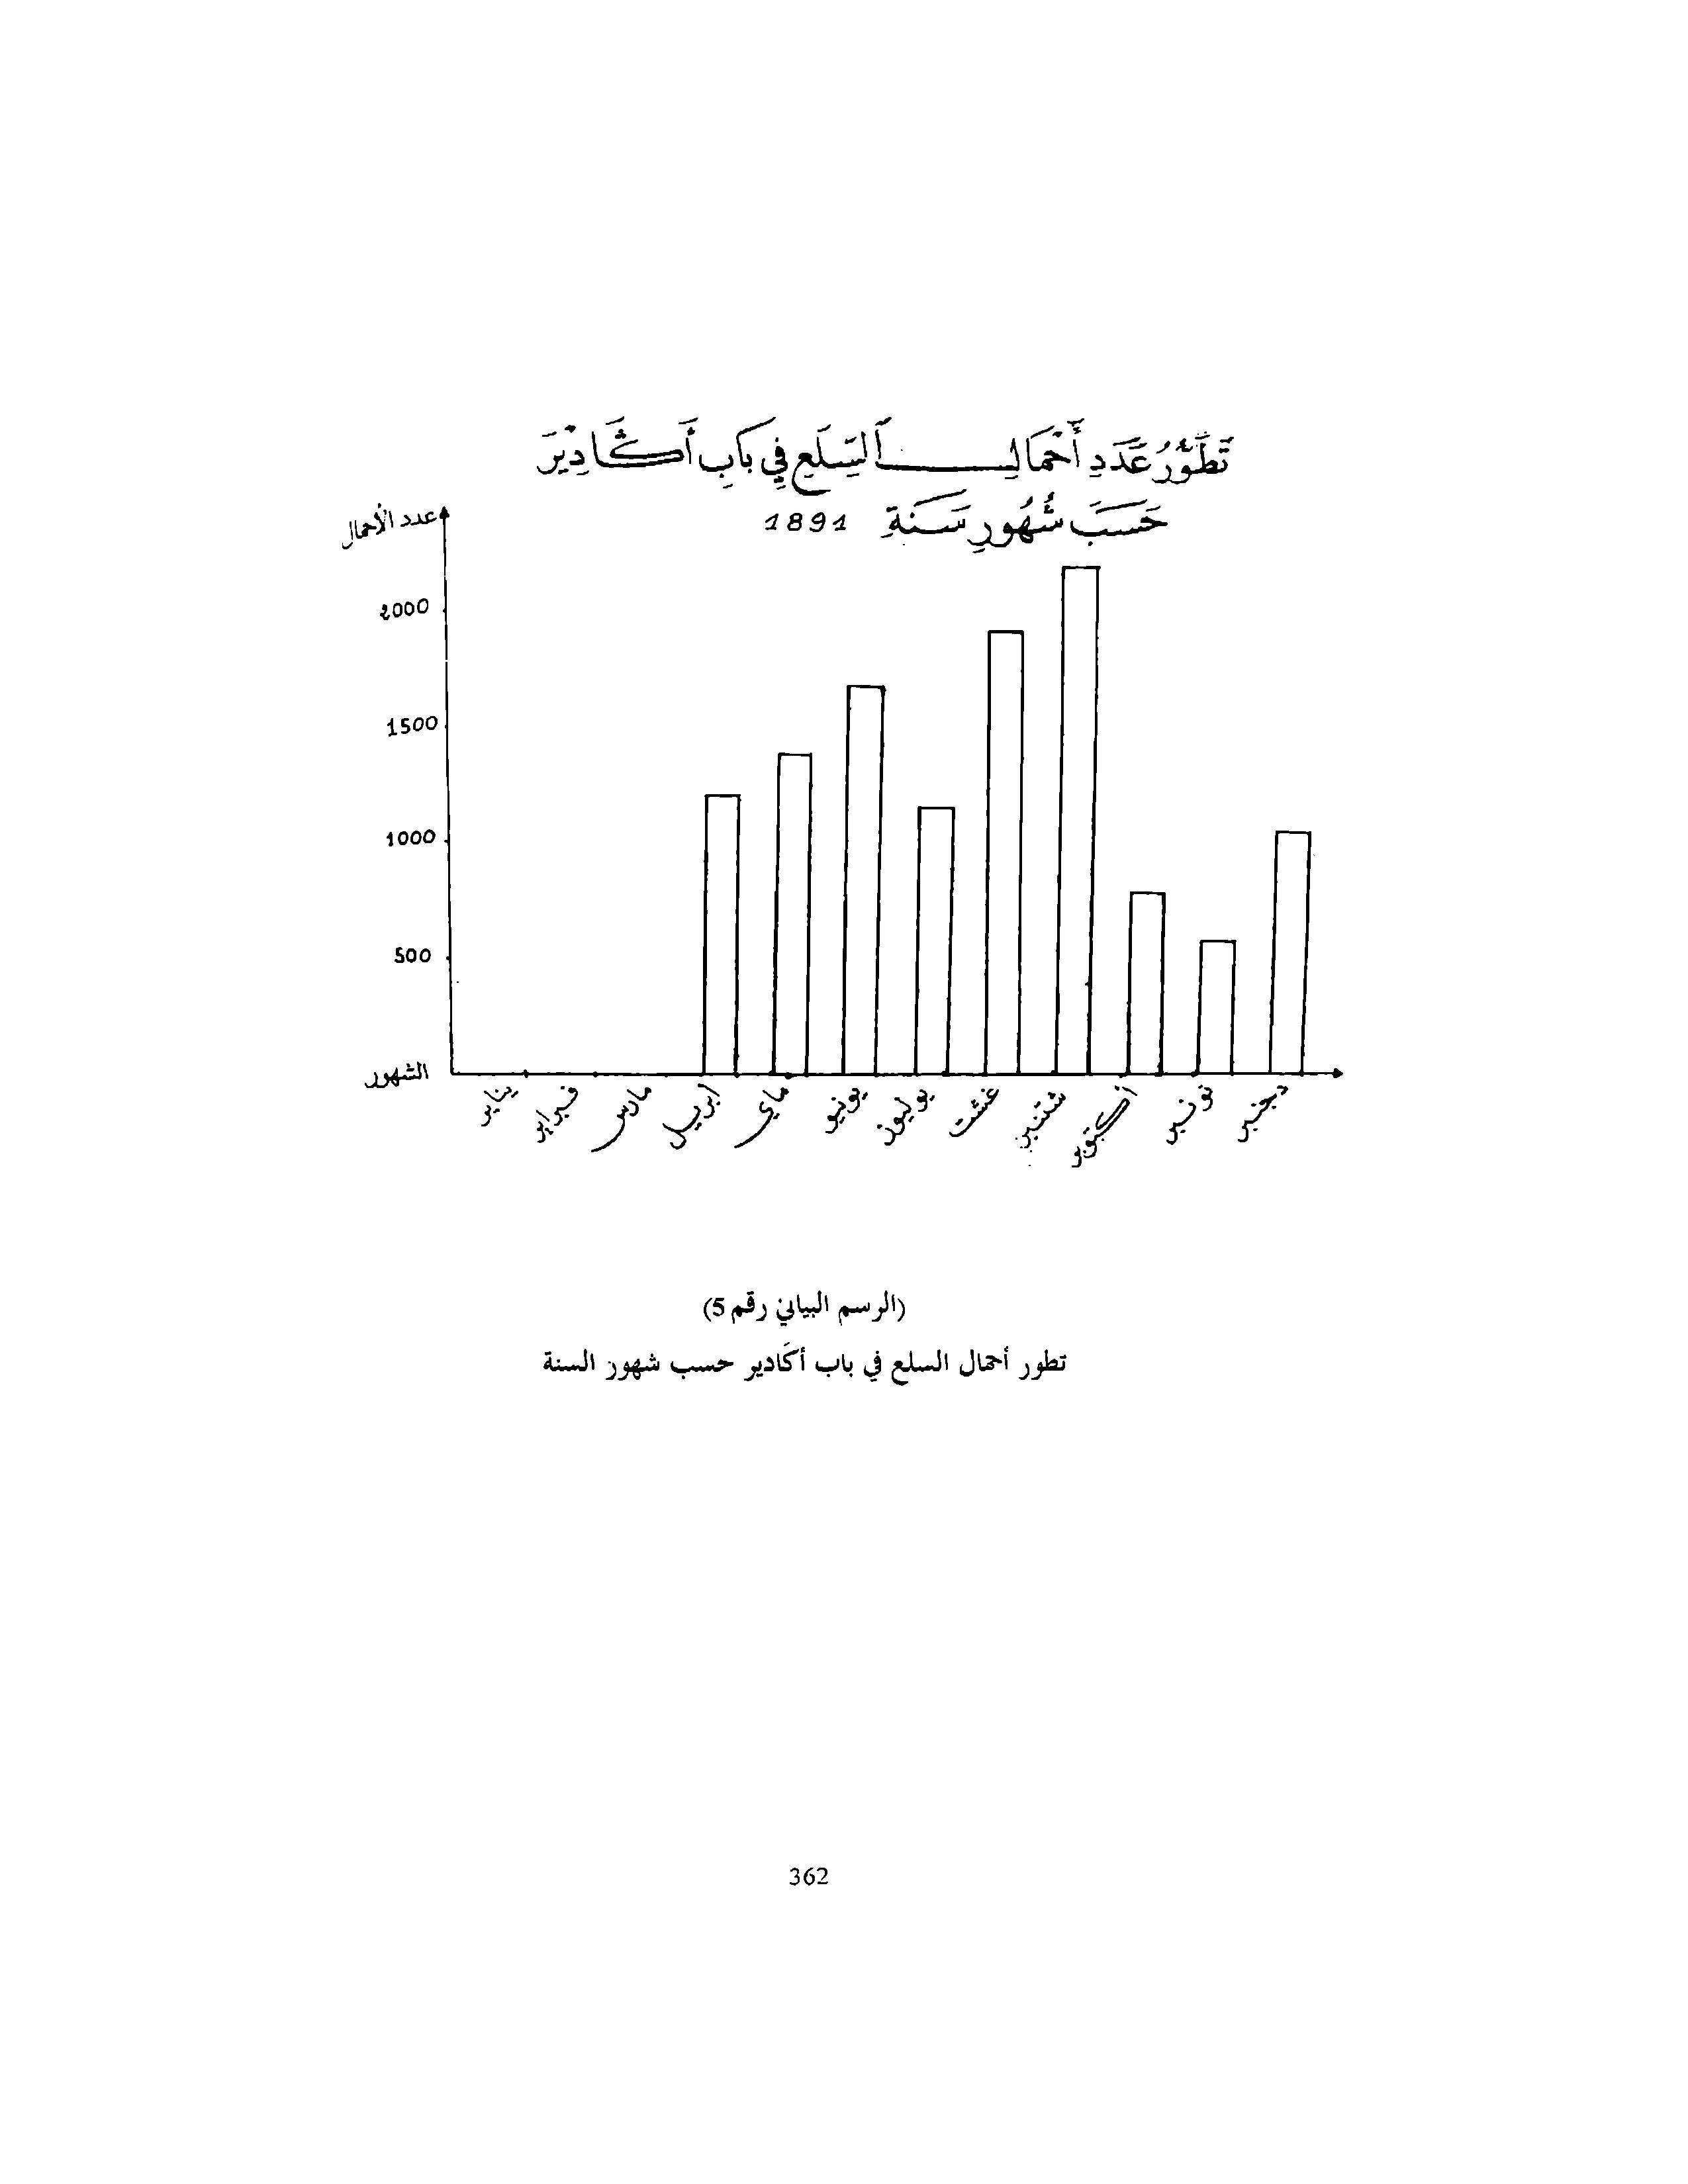 تَطَوُّرُ عَدَدِ أَحْمَالِ ٱلسِّلَعِ فِي بَابِ أَكَادِيرَ
حَسَبَ شُهُورِ سَنَةِ 1891
عدد الأحمال
2000
1500
1000
500
الشهور
يناير
فبراير
مارس
ابريل
ماي
يونيو
يوليوز
غشت
شتنبر
أكتوبر
نونبر
دجنبر
(الرسم البياني رقم 5)
تطور أحمال السلع في باب أكَادير حسب شهور السنة
362